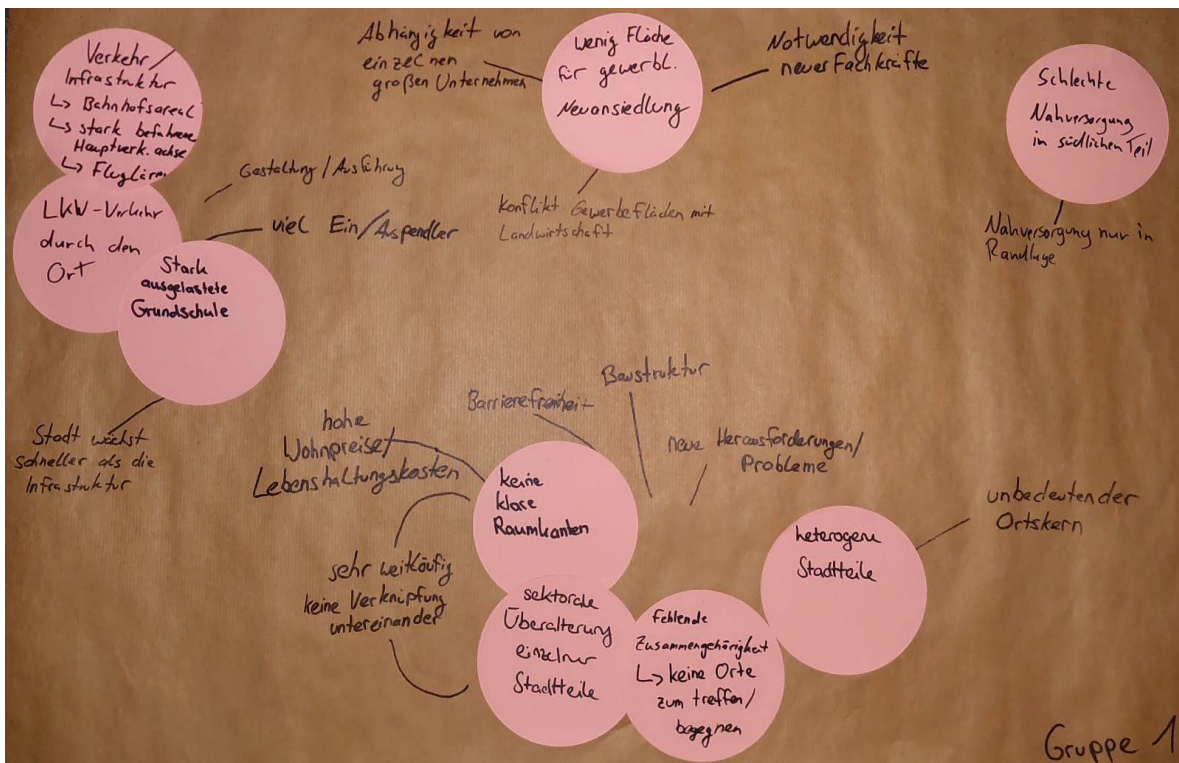 Verkehr /
Infrastruktur
↳ Bahnhofsareal
↳ stark befahrene
Hauptverk. achse
↳ Fluglärm
LKW-Verkehr
durch den
Ort
Stark
ausgelastete
Grundschule
Gestaltung / Ausführung
viel Ein/Auspendler
Stadt wächst
schneller als die
Infrastruktur
Abhängigkeit von
einzelnen
großen Unternehmen
wenig Fläche
für gewerbl.
Neuansiedlung
Notwendigkeit
neuer Fachkräfte
Konflikt Gewerbeflächen mit
Landwirtschaft
Schlechte
Nahversorgung
in südlichen Teil
Nahversorgung nur in
Randlage
hohe
Wohnpreise/
Lebenshaltungskosten
Barrierefreiheit
Baustruktur
neue Herausforderungen/
Probleme
keine
klare
Raumkanten
sehr weitläufig
keine Verknüpfung
untereinander
sektorale
Überalterung
einzelner
Stadtteile
fehlende
Zusammengehörigkeit
↳ keine Orte
zum treffen/
begegnen
heterogene
Stadtteile
unbedeutender
Ortskern
Gruppe 1